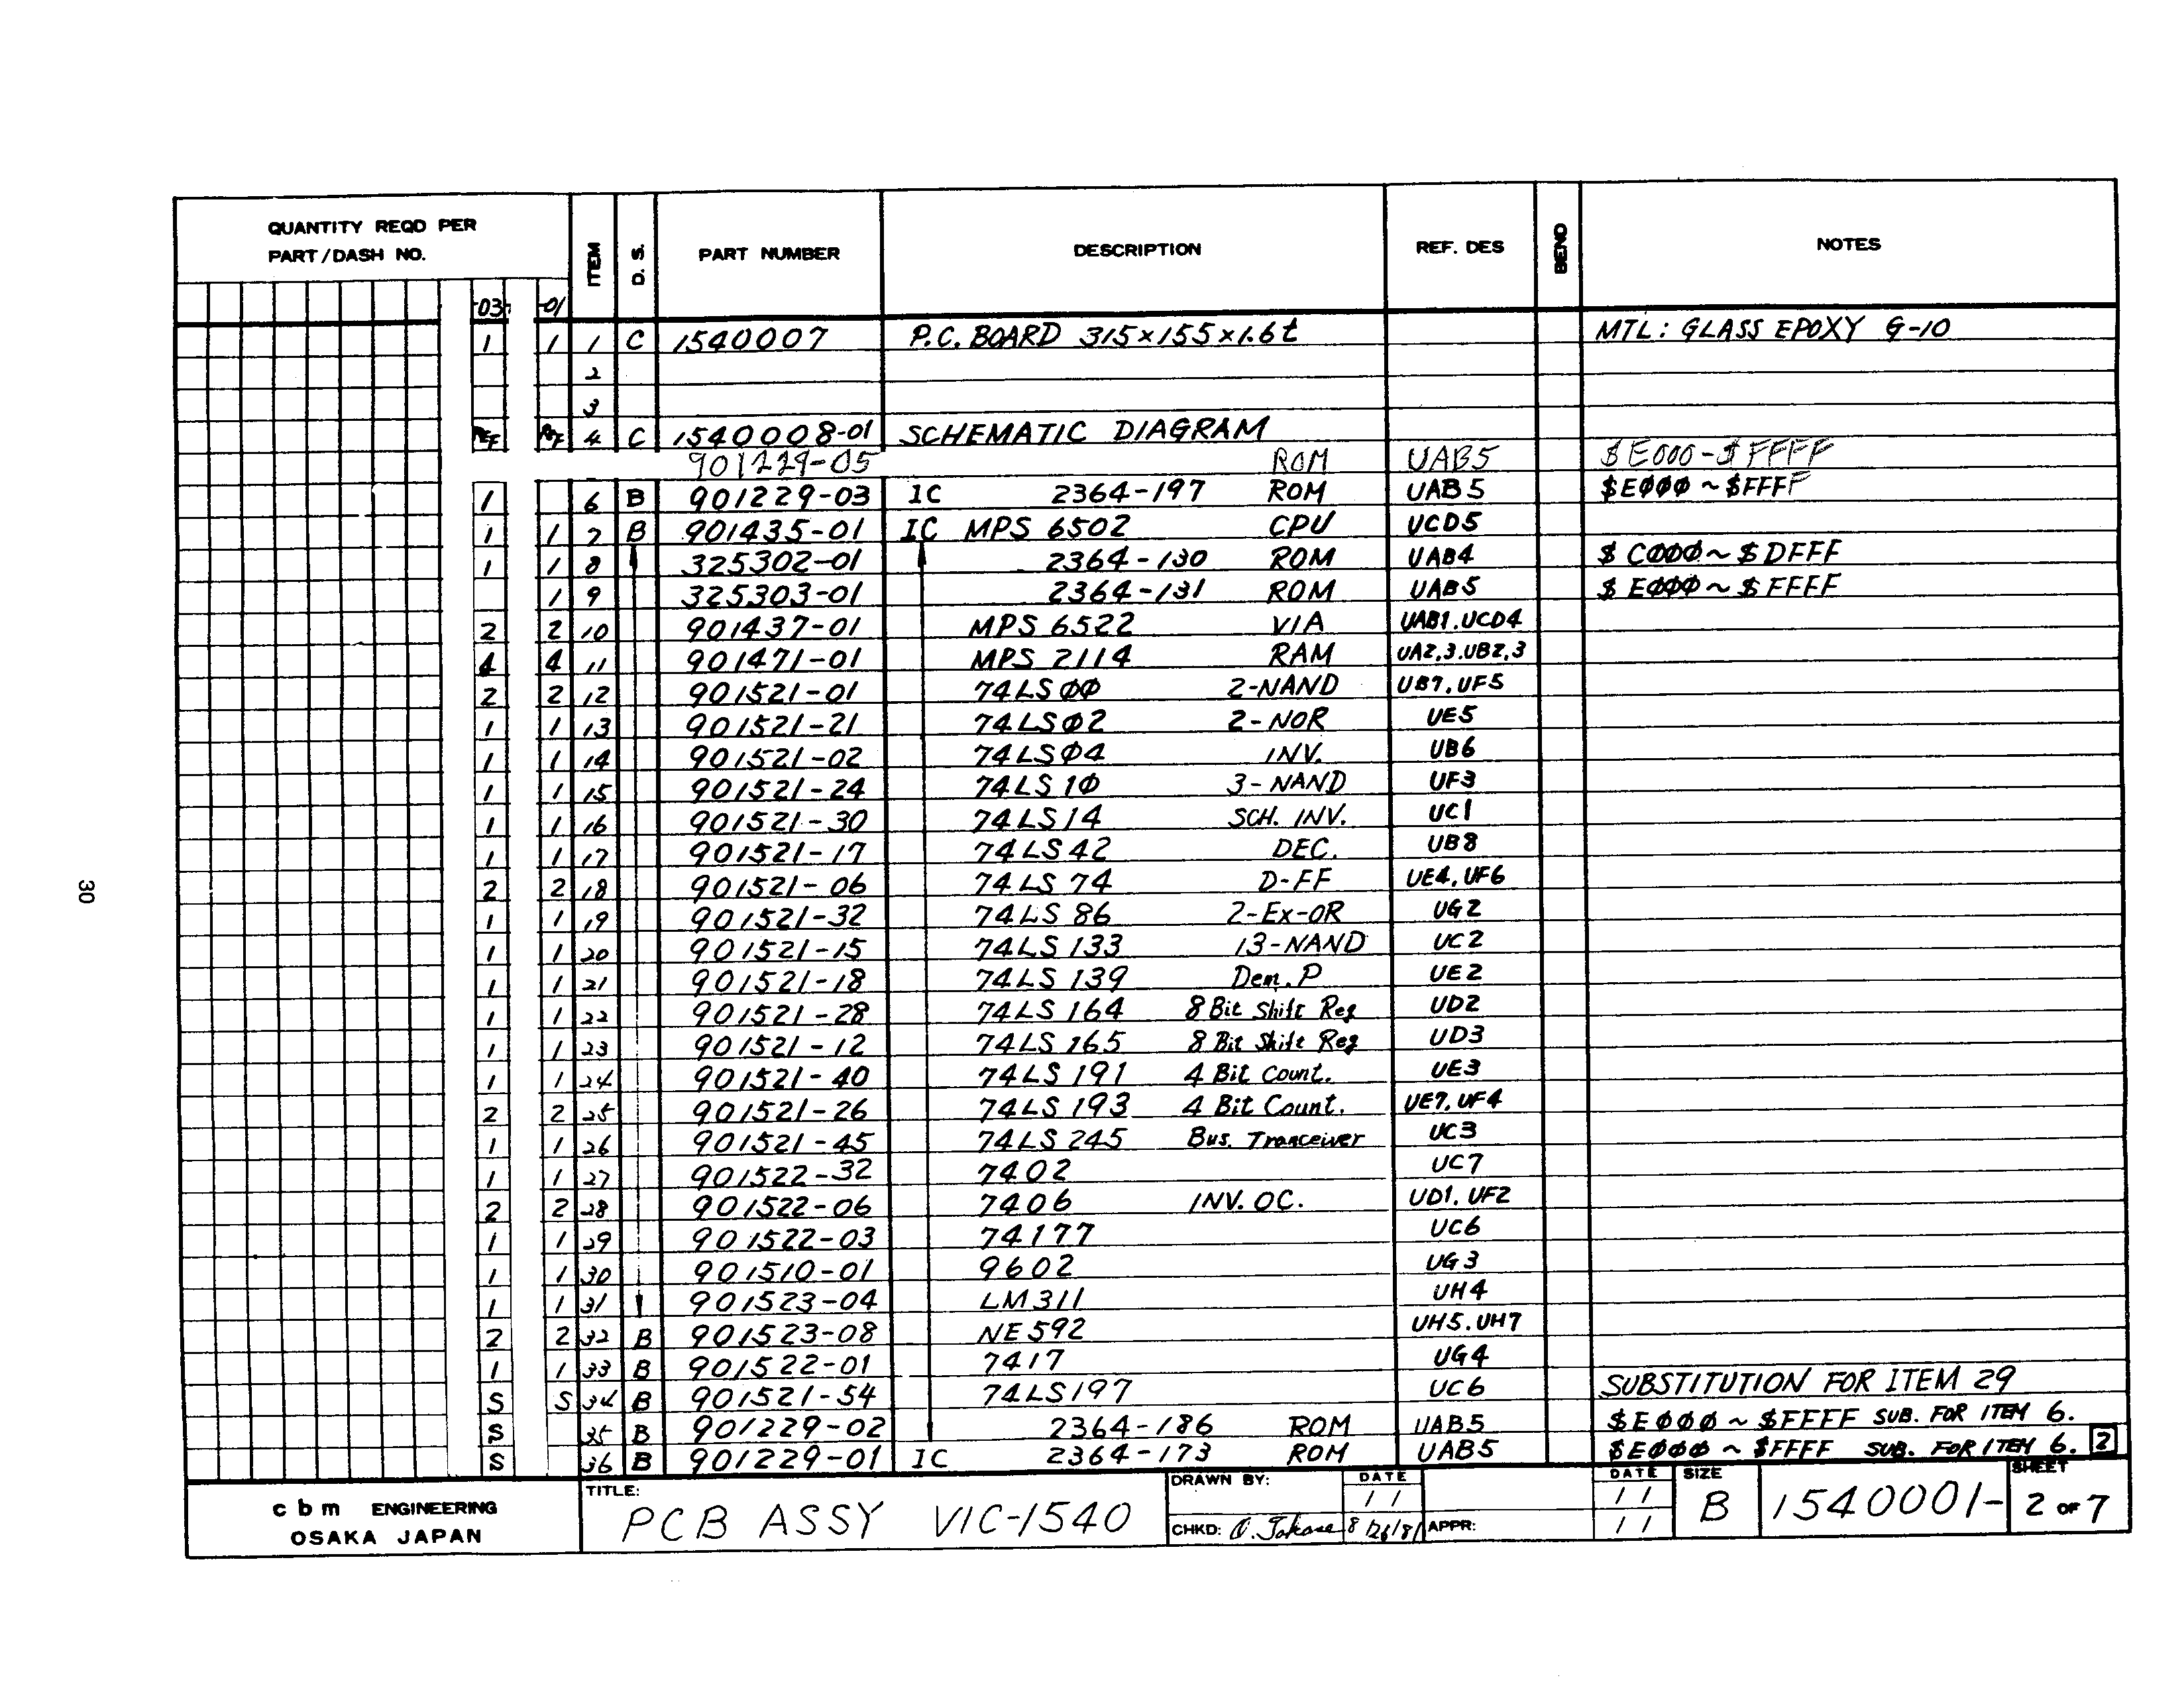 QUANTITY REQD PER
PART/DASH NO. ITEM D. S. PART NUMBER DESCRIPTION REF. DES BEND NOTES
-03- -01
1 1 1 C 1540007 P.C. BOARD 315×155×1.6t MTL: GLASS EPOXY G-10
2
3
REF REF 4 C 1540008-01 SCHEMATIC DIAGRAM
901229-05 ROM UAB5 $E000-$FFFF
1 6 B 901229-03 IC 2364-197 ROM UAB5 $EØØØ~$FFFF
1 1 7 B 901435-01 IC MPS 6502 CPU UCD5
1 1 8 325302-01 2364-130 ROM UAB4 $CØØØ~$DFFF
1 9 325303-01 2364-131 ROM UAB5 $EØØØ~$FFFF
2 2 10 901437-01 MPS 6522 VIA UAB1.UCD4
4 4 11 901471-01 MPS 2114 RAM UA2,3.UB2,3
2 2 12 901521-01 74LSØØ 2-NAND UB7,UF5
1 1 13 901521-21 74LSØ2 2-NOR UE5
1 1 14 901521-02 74LSØ4 INV. UB6
1 1 15 901521-24 74LS1Ø 3-NAND UF3
1 1 16 901521-30 74LS14 SCH. INV. UC1
1 1 17 901521-17 74LS42 DEC. UB8
2 2 18 901521-06 74LS74 D-FF UE4,UF6
1 1 19 901521-32 74LS86 2-Ex-OR UG2
1 1 20 901521-15 74LS133 13-NAND UC2
1 1 21 901521-18 74LS139 Dem.P UE2
1 1 22 901521-28 74LS164 8 Bit Shift Reg UD2
1 1 23 901521-12 74LS165 8 Bit Shift Reg UD3
1 1 24 901521-40 74LS191 4 Bit Count. UE3
2 2 25 901521-26 74LS193 4 Bit Count. UE7,UF4
1 1 26 901521-45 74LS245 Bus. Tranceiver UC3
1 1 27 901522-32 7402 UC7
2 2 28 901522-06 7406 INV. OC. UD1.UF2
1 1 29 901522-03 74177 UC6
1 1 30 901510-01 9602 UG3
1 1 31 901523-04 LM311 UH4
2 2 32 B 901523-08 NE592 UH5.UH7
1 1 33 B 901522-01 7417 UG4
S S 34 B 901521-54 74LS197 UC6 SUBSTITUTION FOR ITEM 29
S 35 B 901229-02 2364-186 ROM UAB5 $EØØØ~$FFFF SUB. FOR ITEM 6.
S 36 B 901229-01 IC 2364-173 ROM UAB5 $EØØØ~$FFFF SUB. FOR ITEM 6. 2
cbm ENGINEERING
OSAKA JAPAN
TITLE:
PCB ASSY VIC-1540
DRAWN BY: DATE
/ /
CHKD: O. Takase 8/26/81 APPR:
DATE
/ /
/ /
SIZE
B 1540001-
SHEET
2 OF 7
30